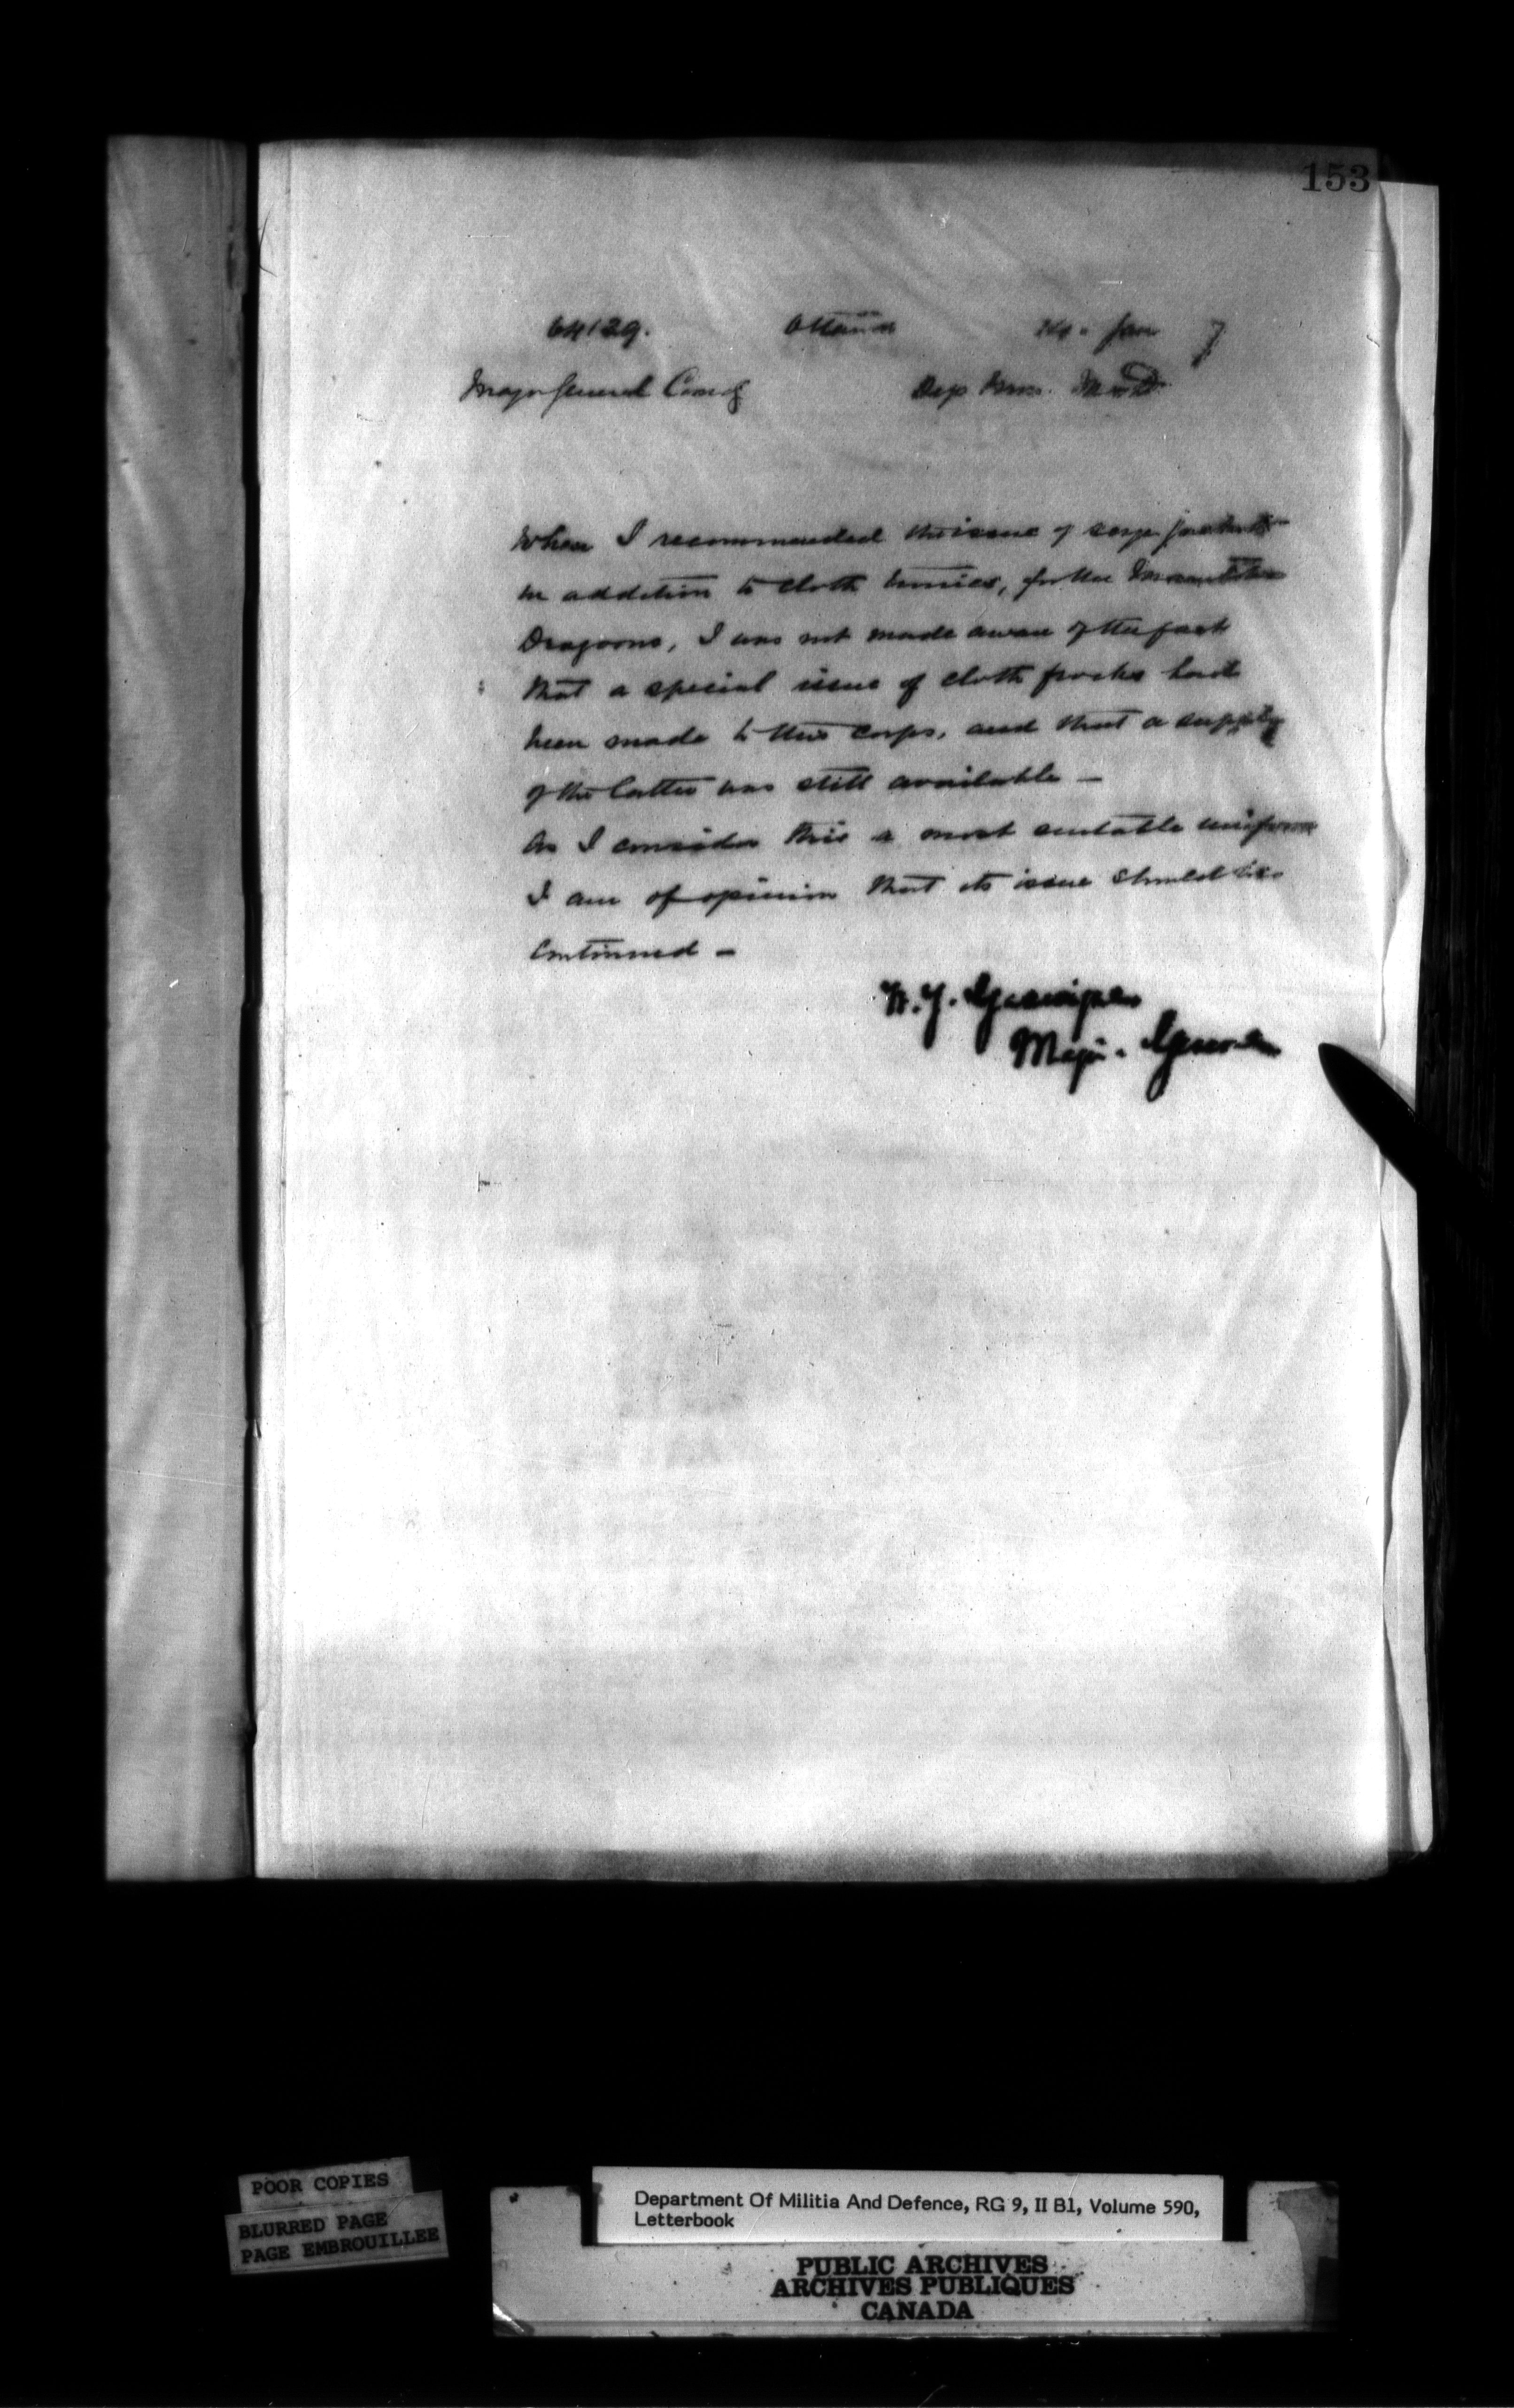 153
64129. Ottawa 14. Jan 7
Major General Comdg Dep Min. M & D.
When I recommended the issue of serge jackets
in addition to cloth tunics, for the Manitoba
Dragoons, I was not made aware of the fact
that a special issue of cloth frocks had
been made to this corps, and that a supply
of the latter was still available —
As I consider this a most suitable uniform
I am of opinion that its issue should be
continued —
W. J. Gascoigne
Major. General
POOR COPIES
BLURRED PAGE
PAGE EMBROUILLEE
Department Of Militia And Defence, RG 9, II B1, Volume 590,
Letterbook
PUBLIC ARCHIVES
ARCHIVES PUBLIQUES
CANADA